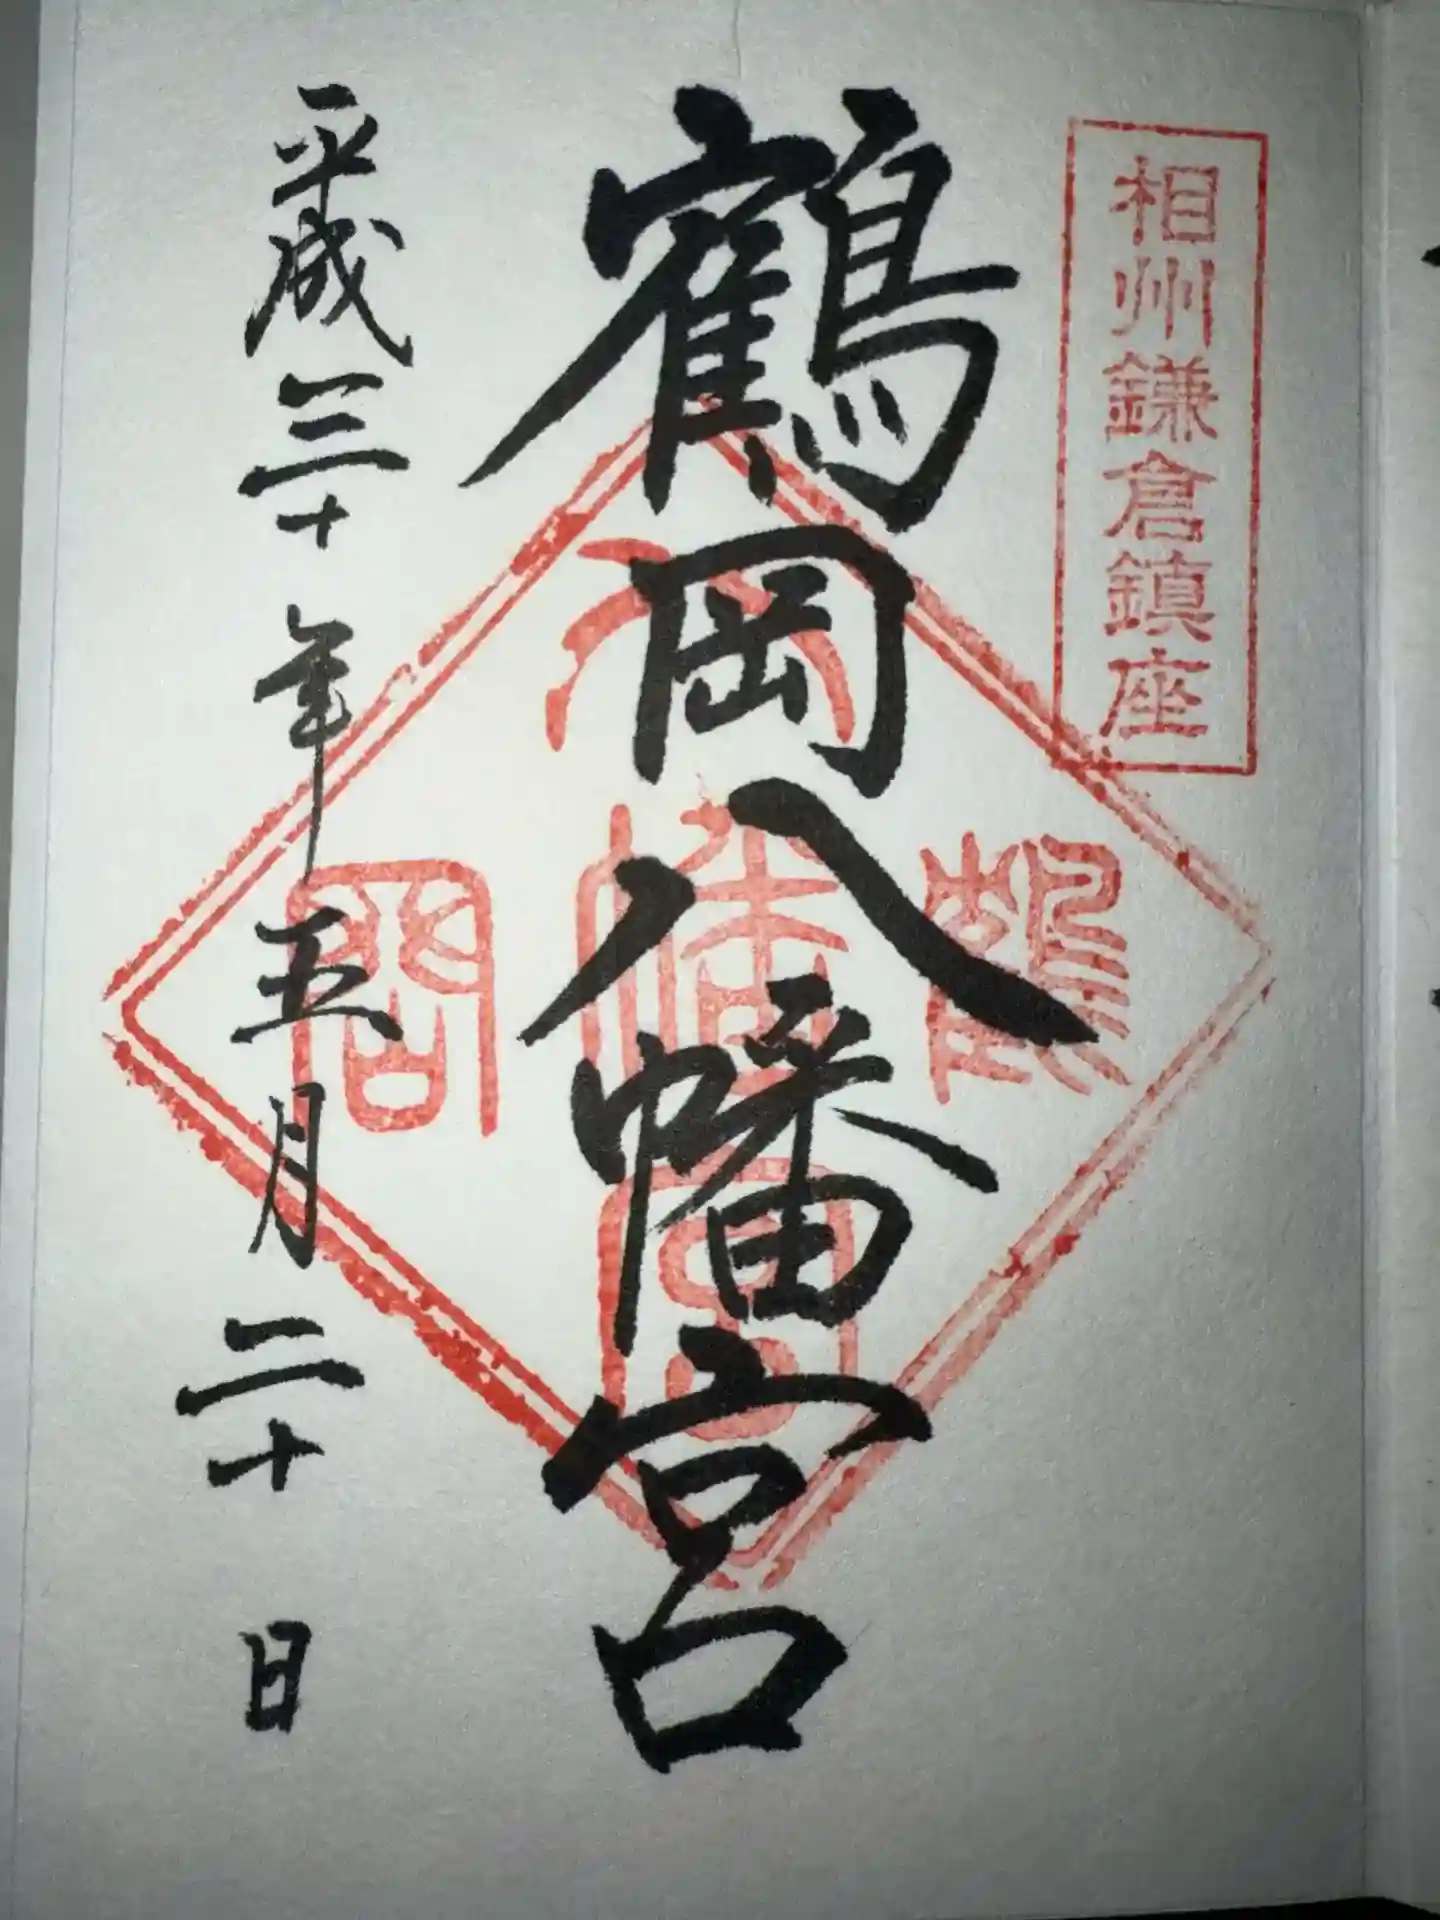 相州鎌倉鎮座
鶴岡八幡宮
鶴
八
幡
宮
岡
平成三十年五月二十日